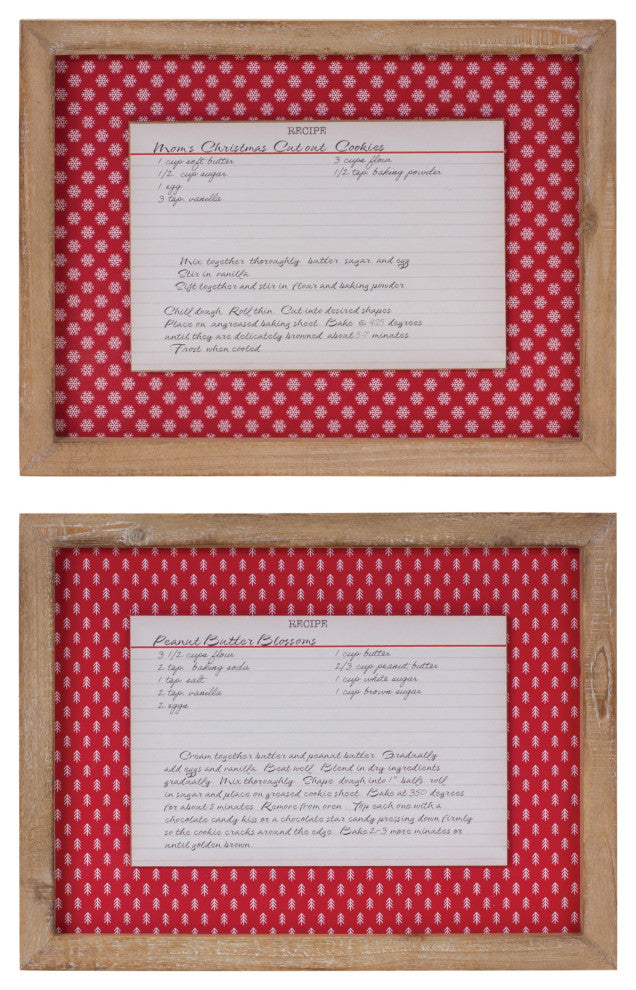 RECIPE
Mom's Christmas Cut out Cookies
1 cup soft butter
1/2 cup sugar
1 egg
3 tsp. vanilla
3 cups flour
1/2 tsp. baking powder
Mix together thoroughly butter sugar and egg
Stir in vanilla
Sift together and stir in flour and baking powder
Chill dough. Roll thin. Cut into desired shapes
Place on ungreased baking sheet. Bake @ 425 degrees
until they are delicately browned about 5-7 minutes
Frost when cooled
RECIPE
Peanut Butter Blossoms
3 1/2 cups flour
2 tsp. baking soda
1 tsp. salt
2 tsp. vanilla
2 eggs
1 cup butter
2/3 cup peanut butter
1 cup white sugar
1 cup brown sugar
Cream together butter and peanut butter. Gradually
add eggs and vanilla. Beat well. Blend in dry ingredients
gradually. Mix thoroughly. Shape dough into 1" balls, roll
in sugar and place on greased cookie sheet. Bake at 350 degrees
for about 5 minutes. Remove from oven. Top each one with a
chocolate candy kiss or a chocolate star candy pressing down firmly
so the cookie cracks around the edge. Bake 2-3 more minutes or
until golden brown.